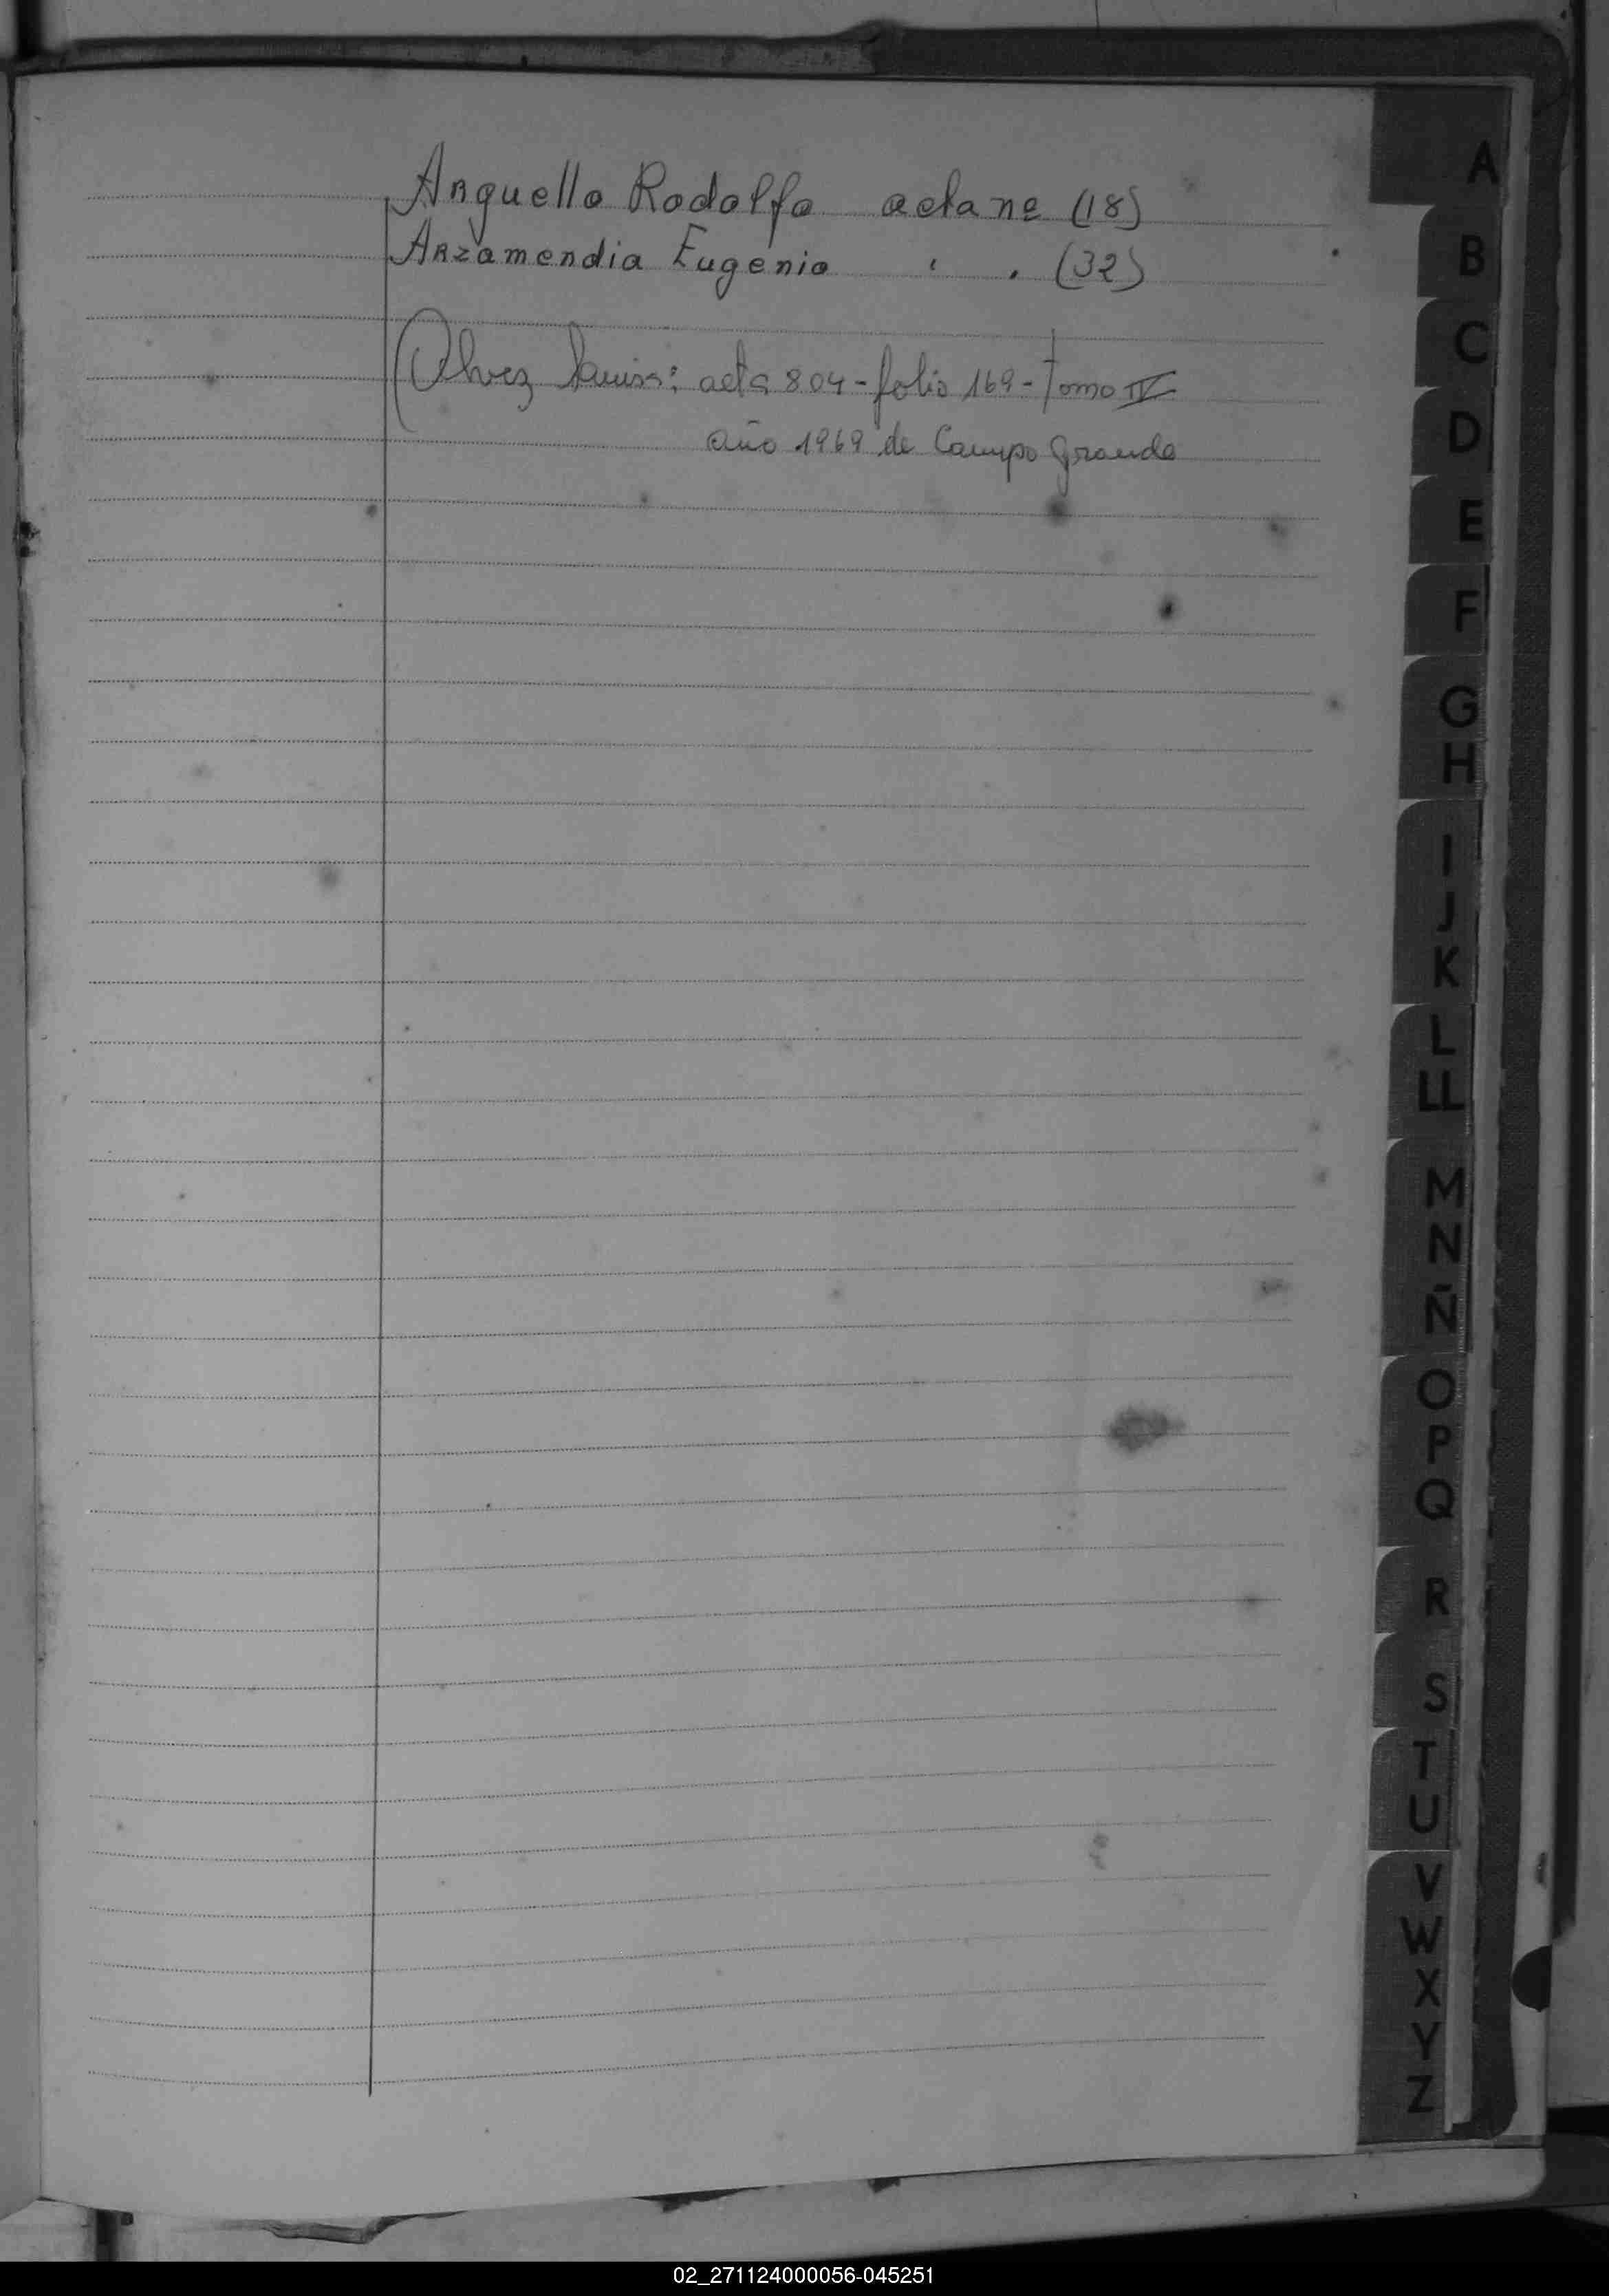 Arguello Rodolfo acta ne (18)
Arzamendia Eugenio " . (32)
(Alvez acta 804 - folio 169 - Tomo IV
año 1969 de Campo Grande
A
B
C
D
E
F
G
H
I
J
K
L
LL
M
N
Ñ
O
P
Q
R
S
T
U
V
W
X
Y
Z
02_271124000056-045251